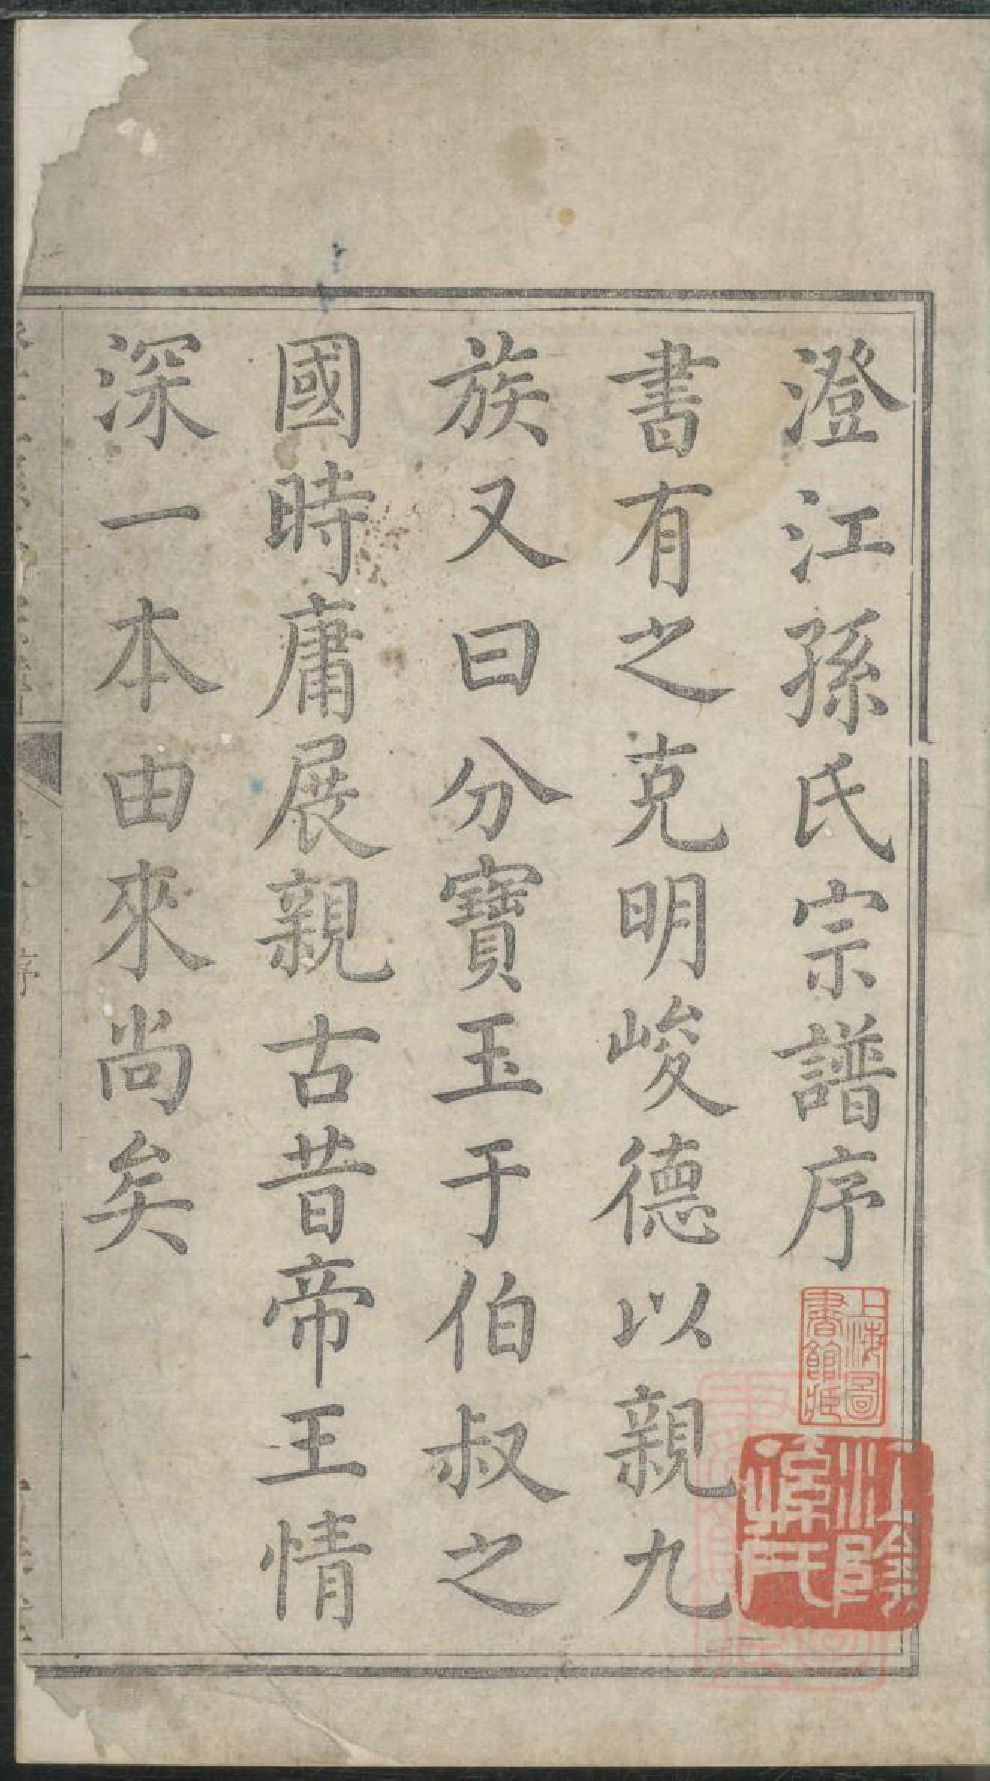 澄江孫氏宗譜序
書有之克明峻德以親九
族又曰分寶玉于伯叔之
國時庸展親古昔帝王情
深一本由來尚矣
上海圖書館藏
江陰孫氏
序